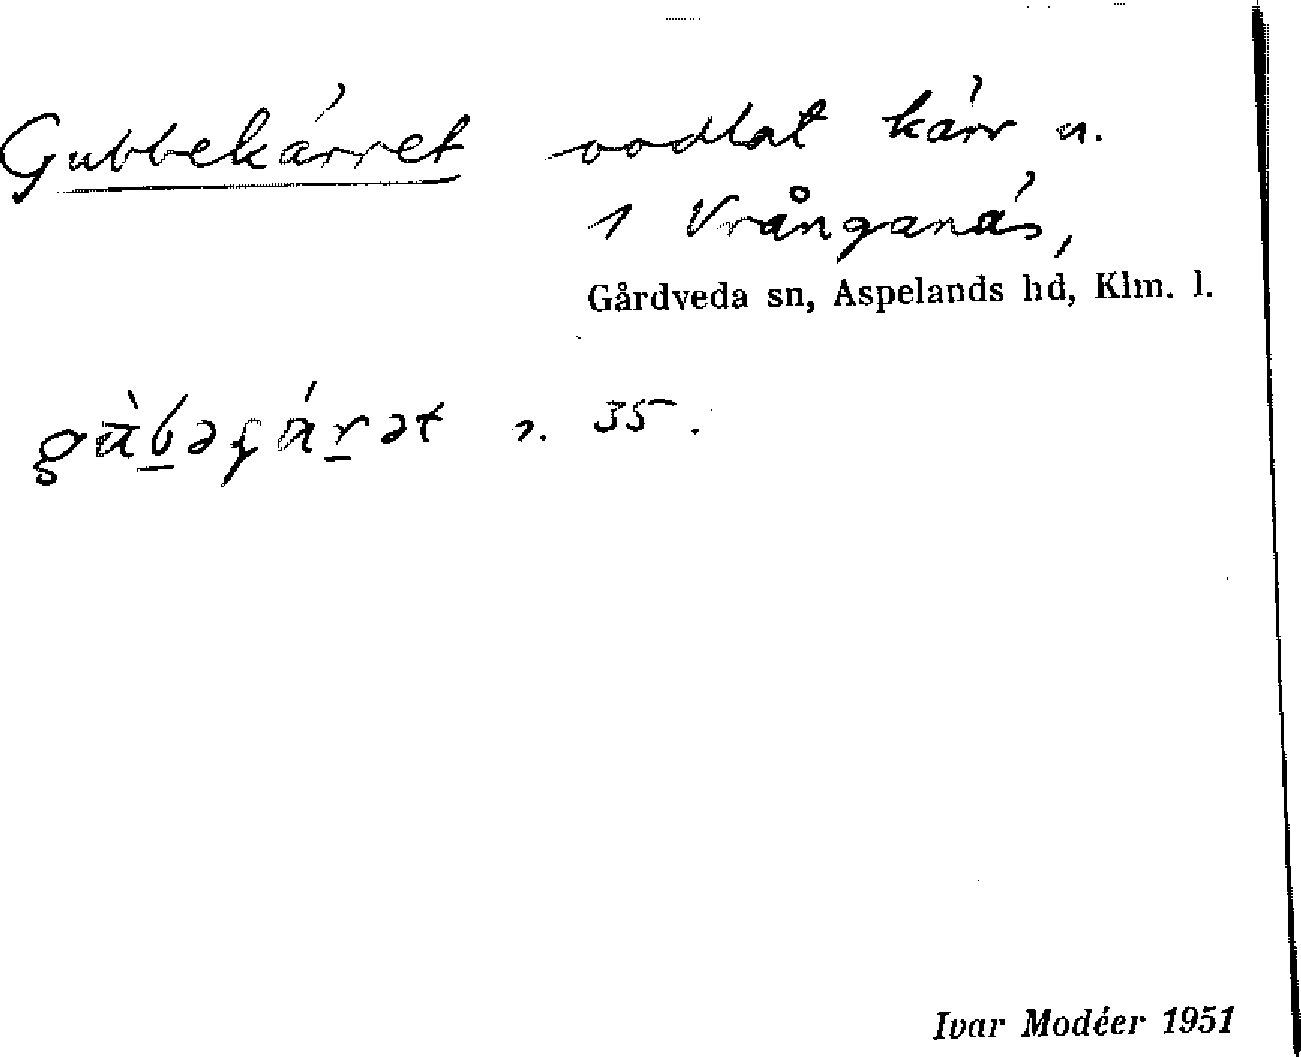 Gubbekärret oodlat kärr u.
1 Vrånganäs,
Gårdveda sn, Aspelands hd, Klm. l.
35.
Ivar Modéer 1951